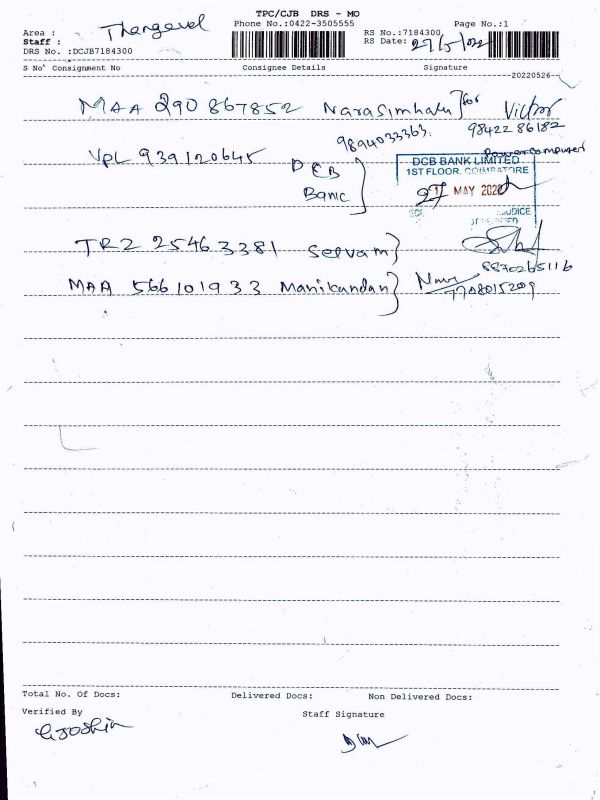 TPC/CJB DRS - MO
Phone No.:0422-3505555
Page No.:1
Area : Thangavel
Staff :
DRS No. :DCJB7184300
RS No.:7184300
RS Date: 27/5/22
S No Consignment No Consignee Details Signature
20220526
MAA 290 867852 Narasimhalu } for Victor
98422 86182
9894033363.
Powercomputer
VPL 939120645 DCB
Banc
DCB BANK LIMITED
1ST FLOOR, COIMBATORE
27 MAY 2022
TRZ 25463381 Selvam }
8870265116
MAA 566101933 Manikandan }
7708015209
Total No. Of Docs: Delivered Docs: Non Delivered Docs:
Verified By
Staff Signature